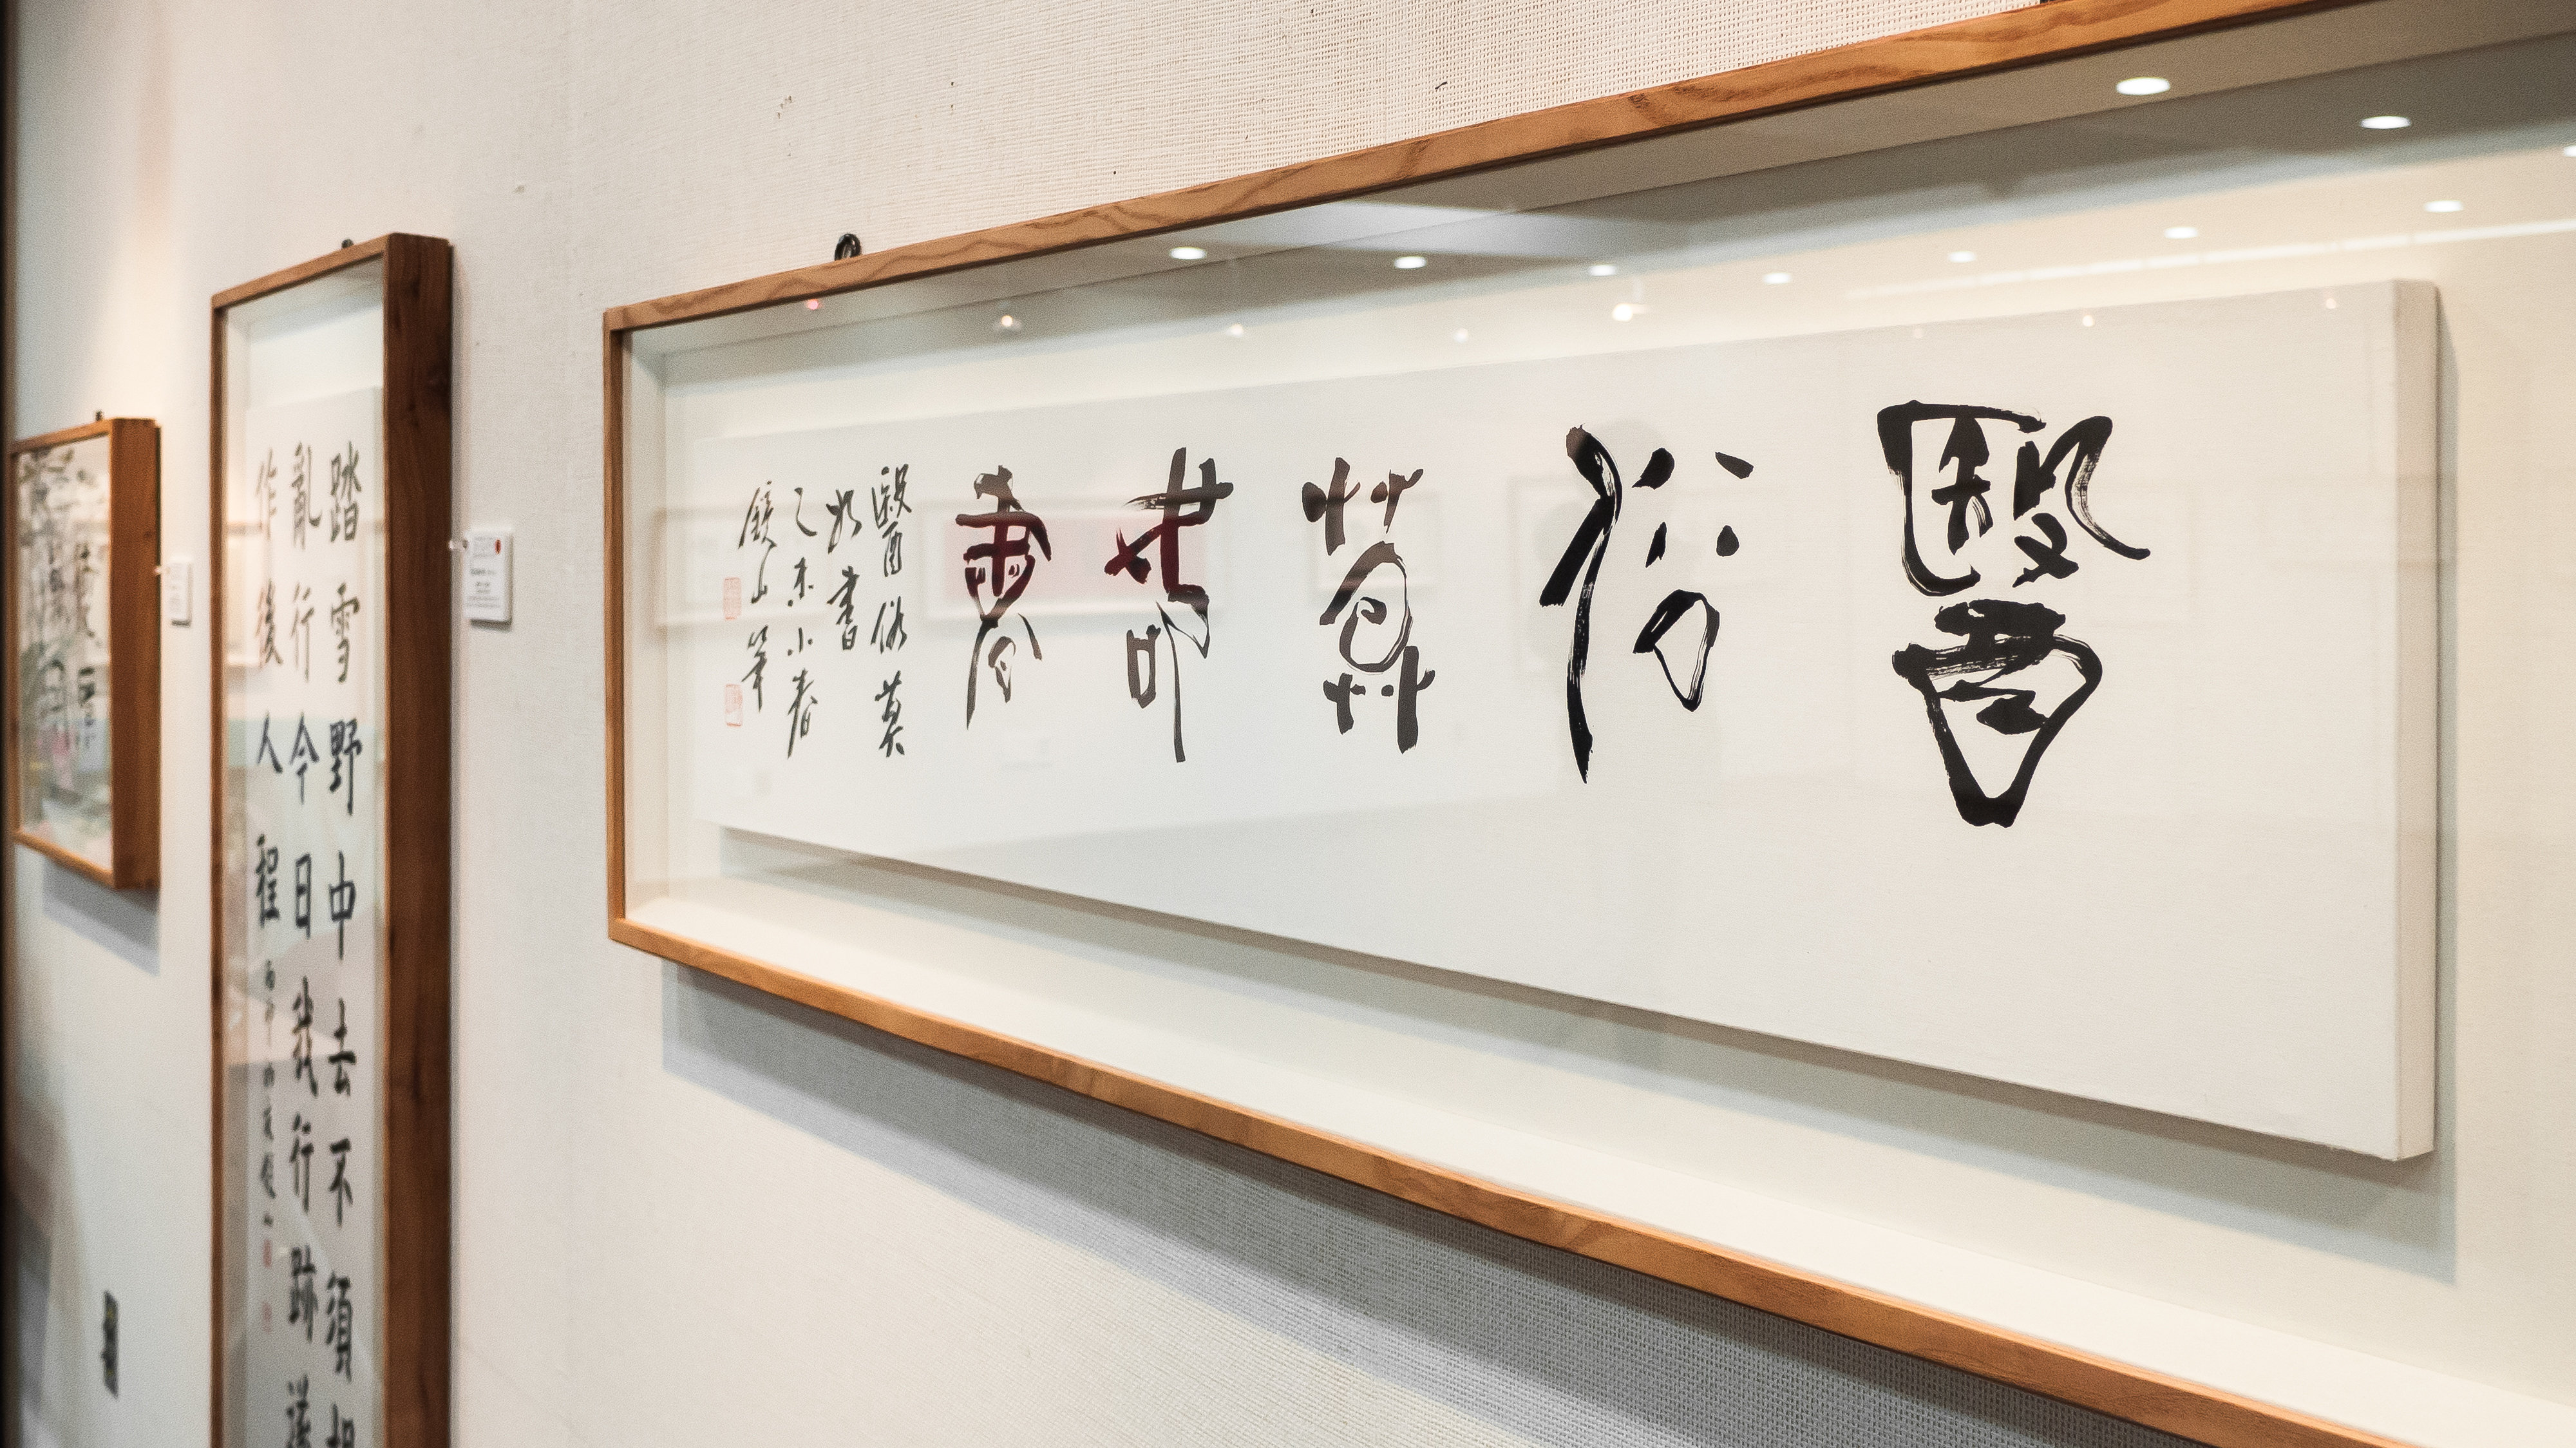 醫俗莫如書
醫俗莫
如書
乙未小春
鏡山筆
踏雪野中去不須胡
亂行今日我行跡遂
作後人程